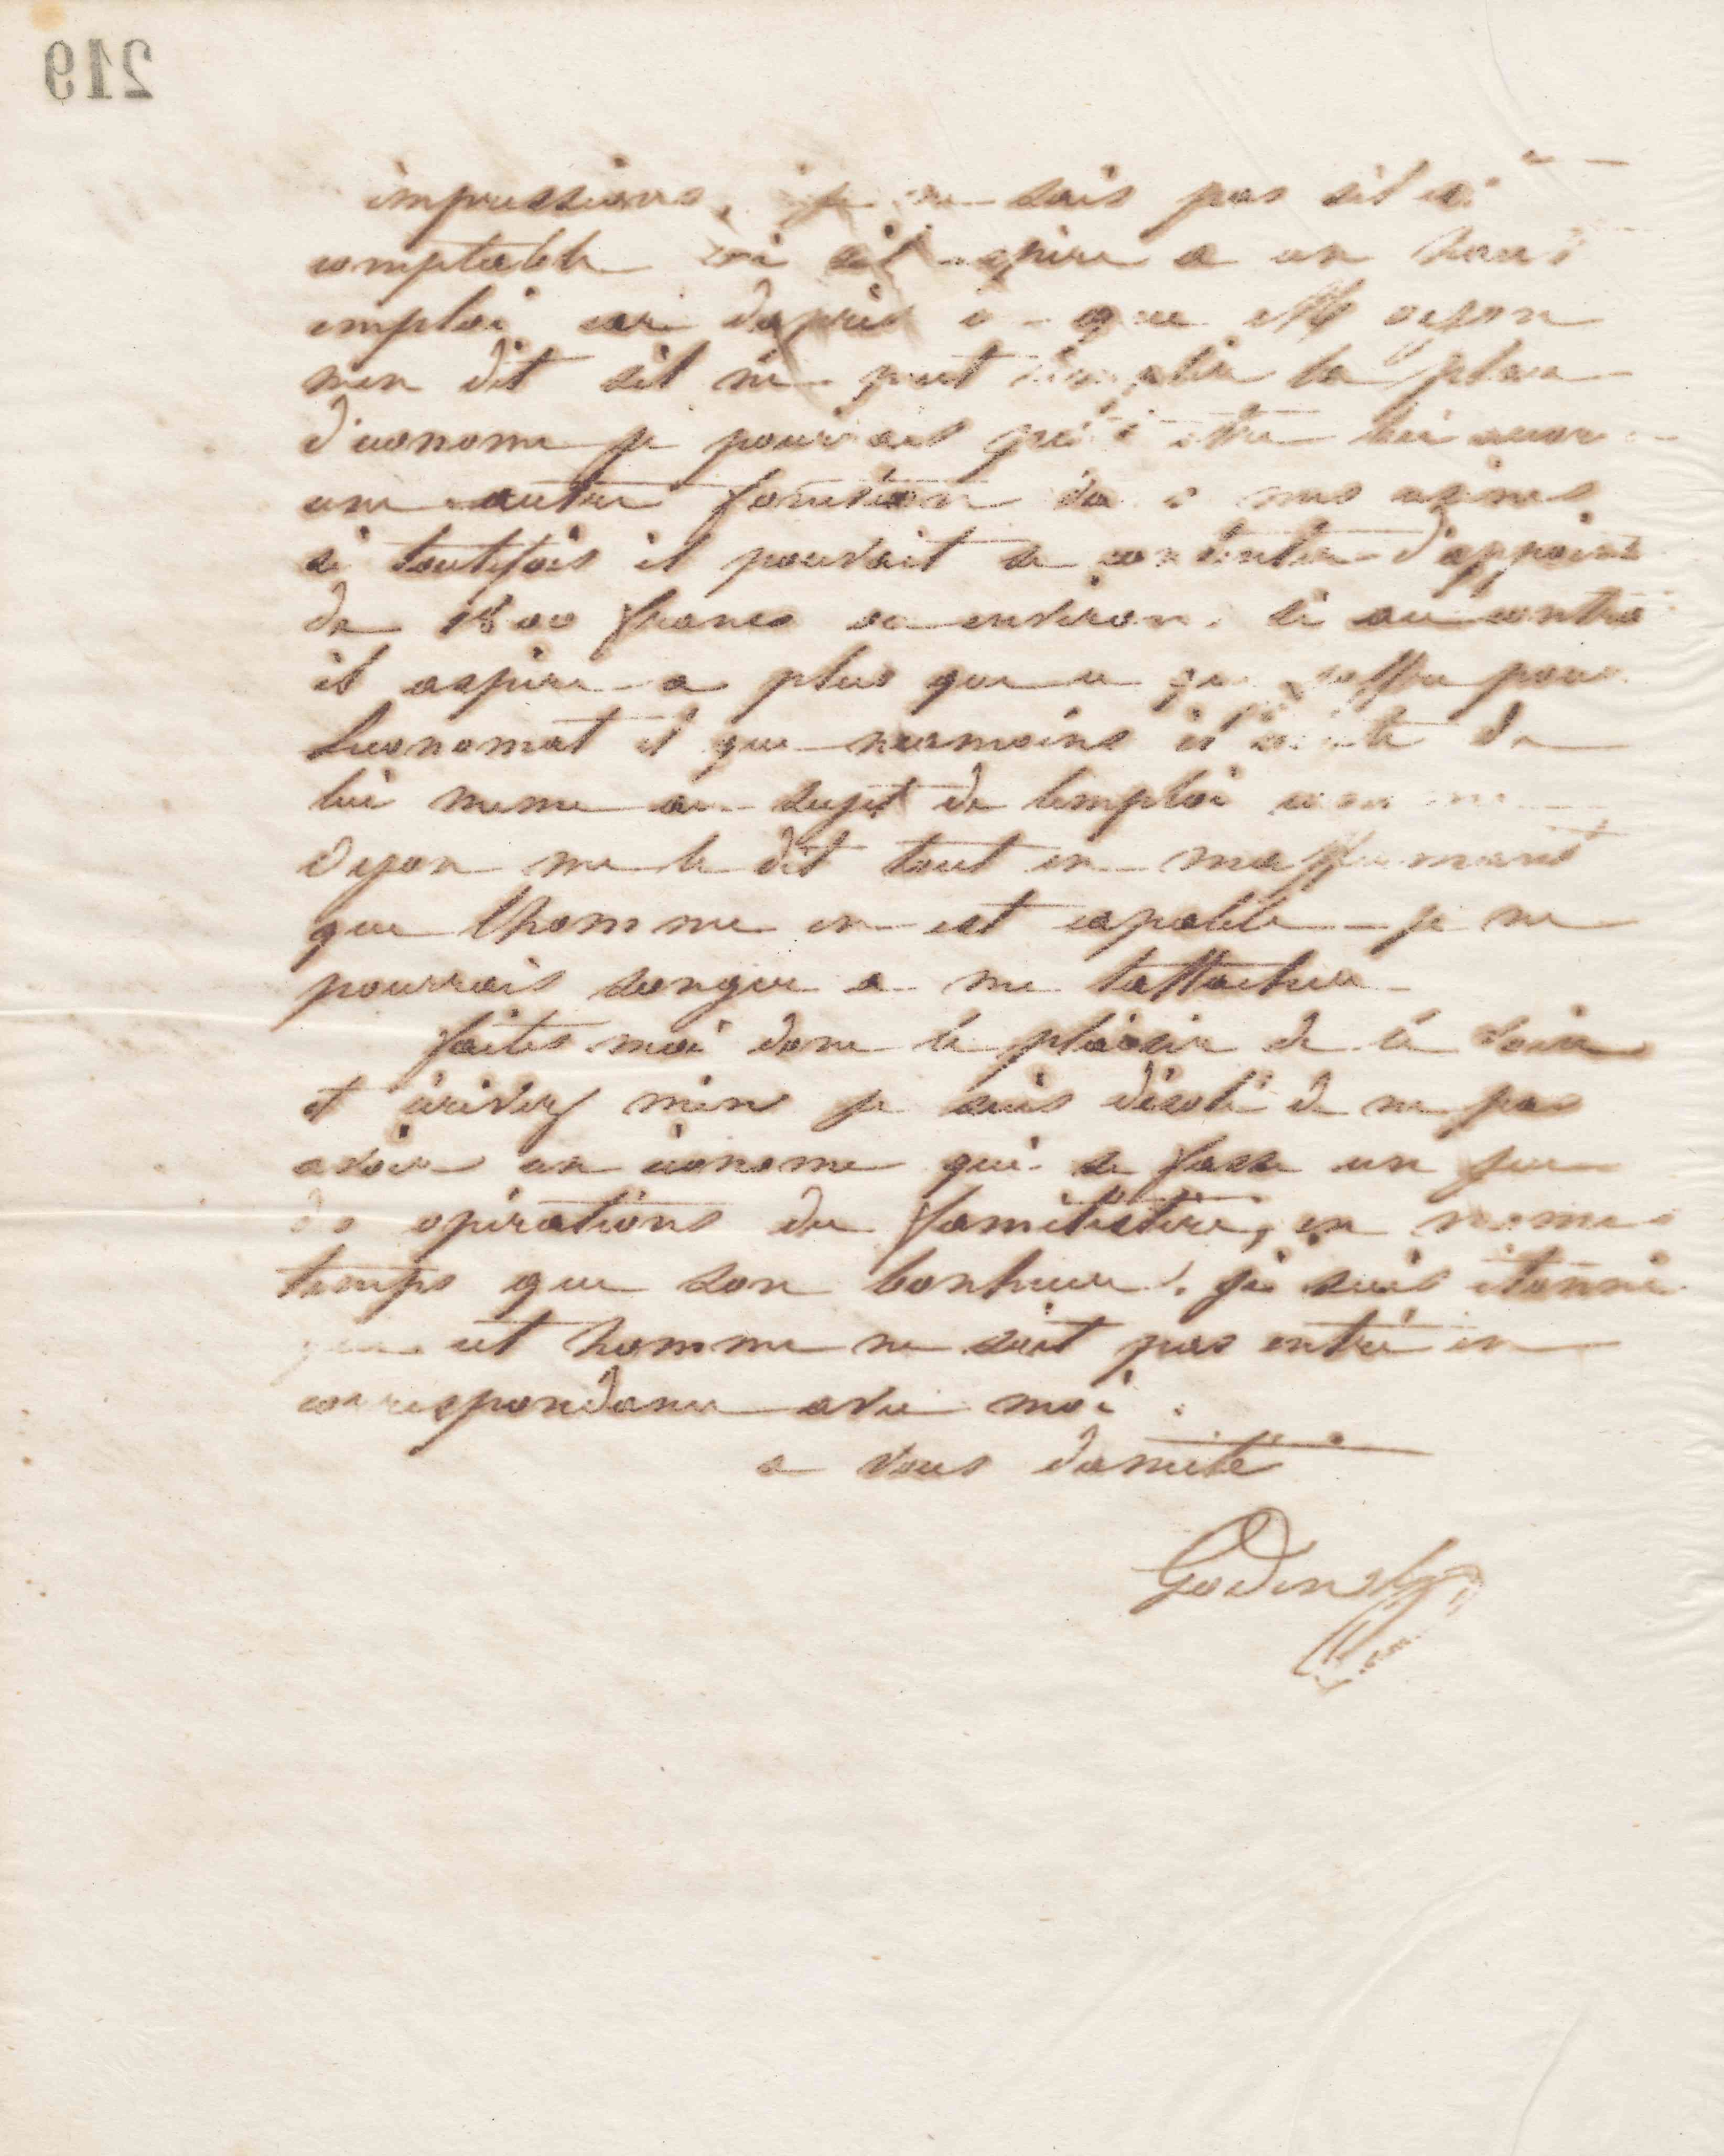 219
impressions, je ne sais pas sil est
comptable ni sil aspire a un haut
emploi car dapres ce que M oyon
men dit sil ne peut remplir la place
d'econome je pourrais peut etre lui avoir
une autre fonction dans mes usines
si toutefois il pouvait se contenter d'appoint
de 1800 francs ou environ. si au contraire
il aspire a plus que ce que joffre pour
leconomat et que neanmoins il doute de
lui meme au sujet de lemploi comme
oyon me le dit tout en maffirmant
que lhomme en est capable je ne
pourrais songer a me lattacher
faites moi donc le plaisir de le voir
et écrivez men je suis désolé de ne pas
avoir un économe qui se fasse un jeu
des opérations du familistère, en meme
temps que son bonheur. je suis étonné
que cet homme ne soit pas entré en
correspondance avec moi.
a vous damitié
Godin